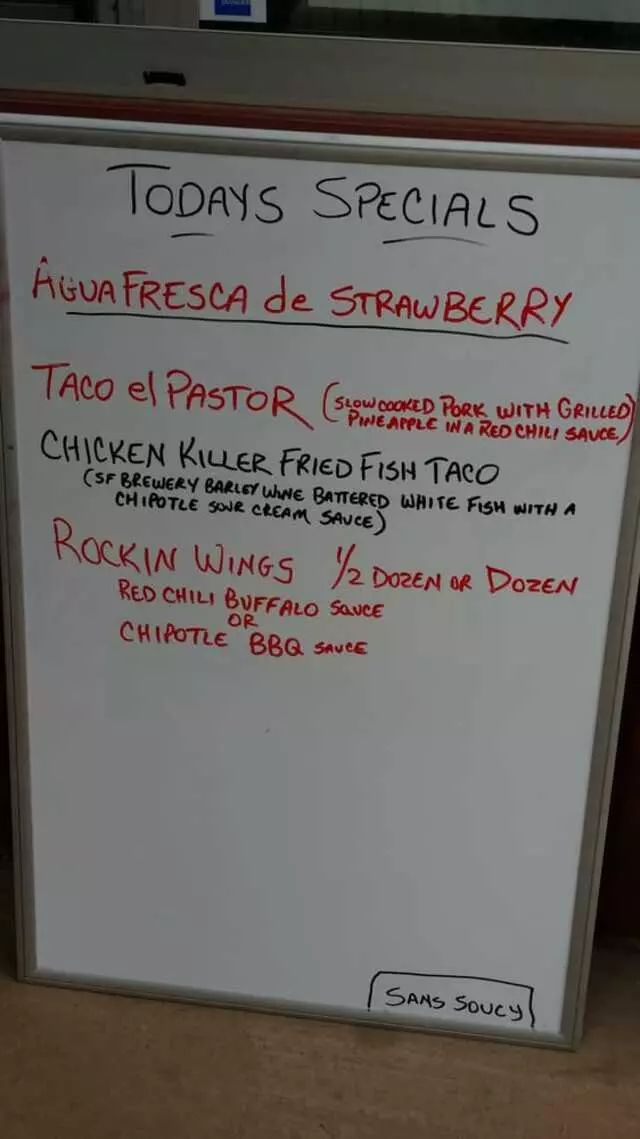 TODAYS SPECIALS
AGUA FRESCA de STRAWBERRY
TACO el PASTOR (SLOW COOKED PORK WITH GRILLED
PINEAPPLE IN A RED CHILI SAUCE)
CHICKEN KILLER FRIED FISH TACO
(SF BREWERY BARLEY WINE BATTERED WHITE FISH WITH A
CHIPOTLE SOUR CREAM SAUCE)
ROCKIN WINGS 1/2 DOZEN OR DOZEN
RED CHILI BUFFALO SAUCE
OR
CHIPOTLE BBQ SAUCE
SANS SOUCY